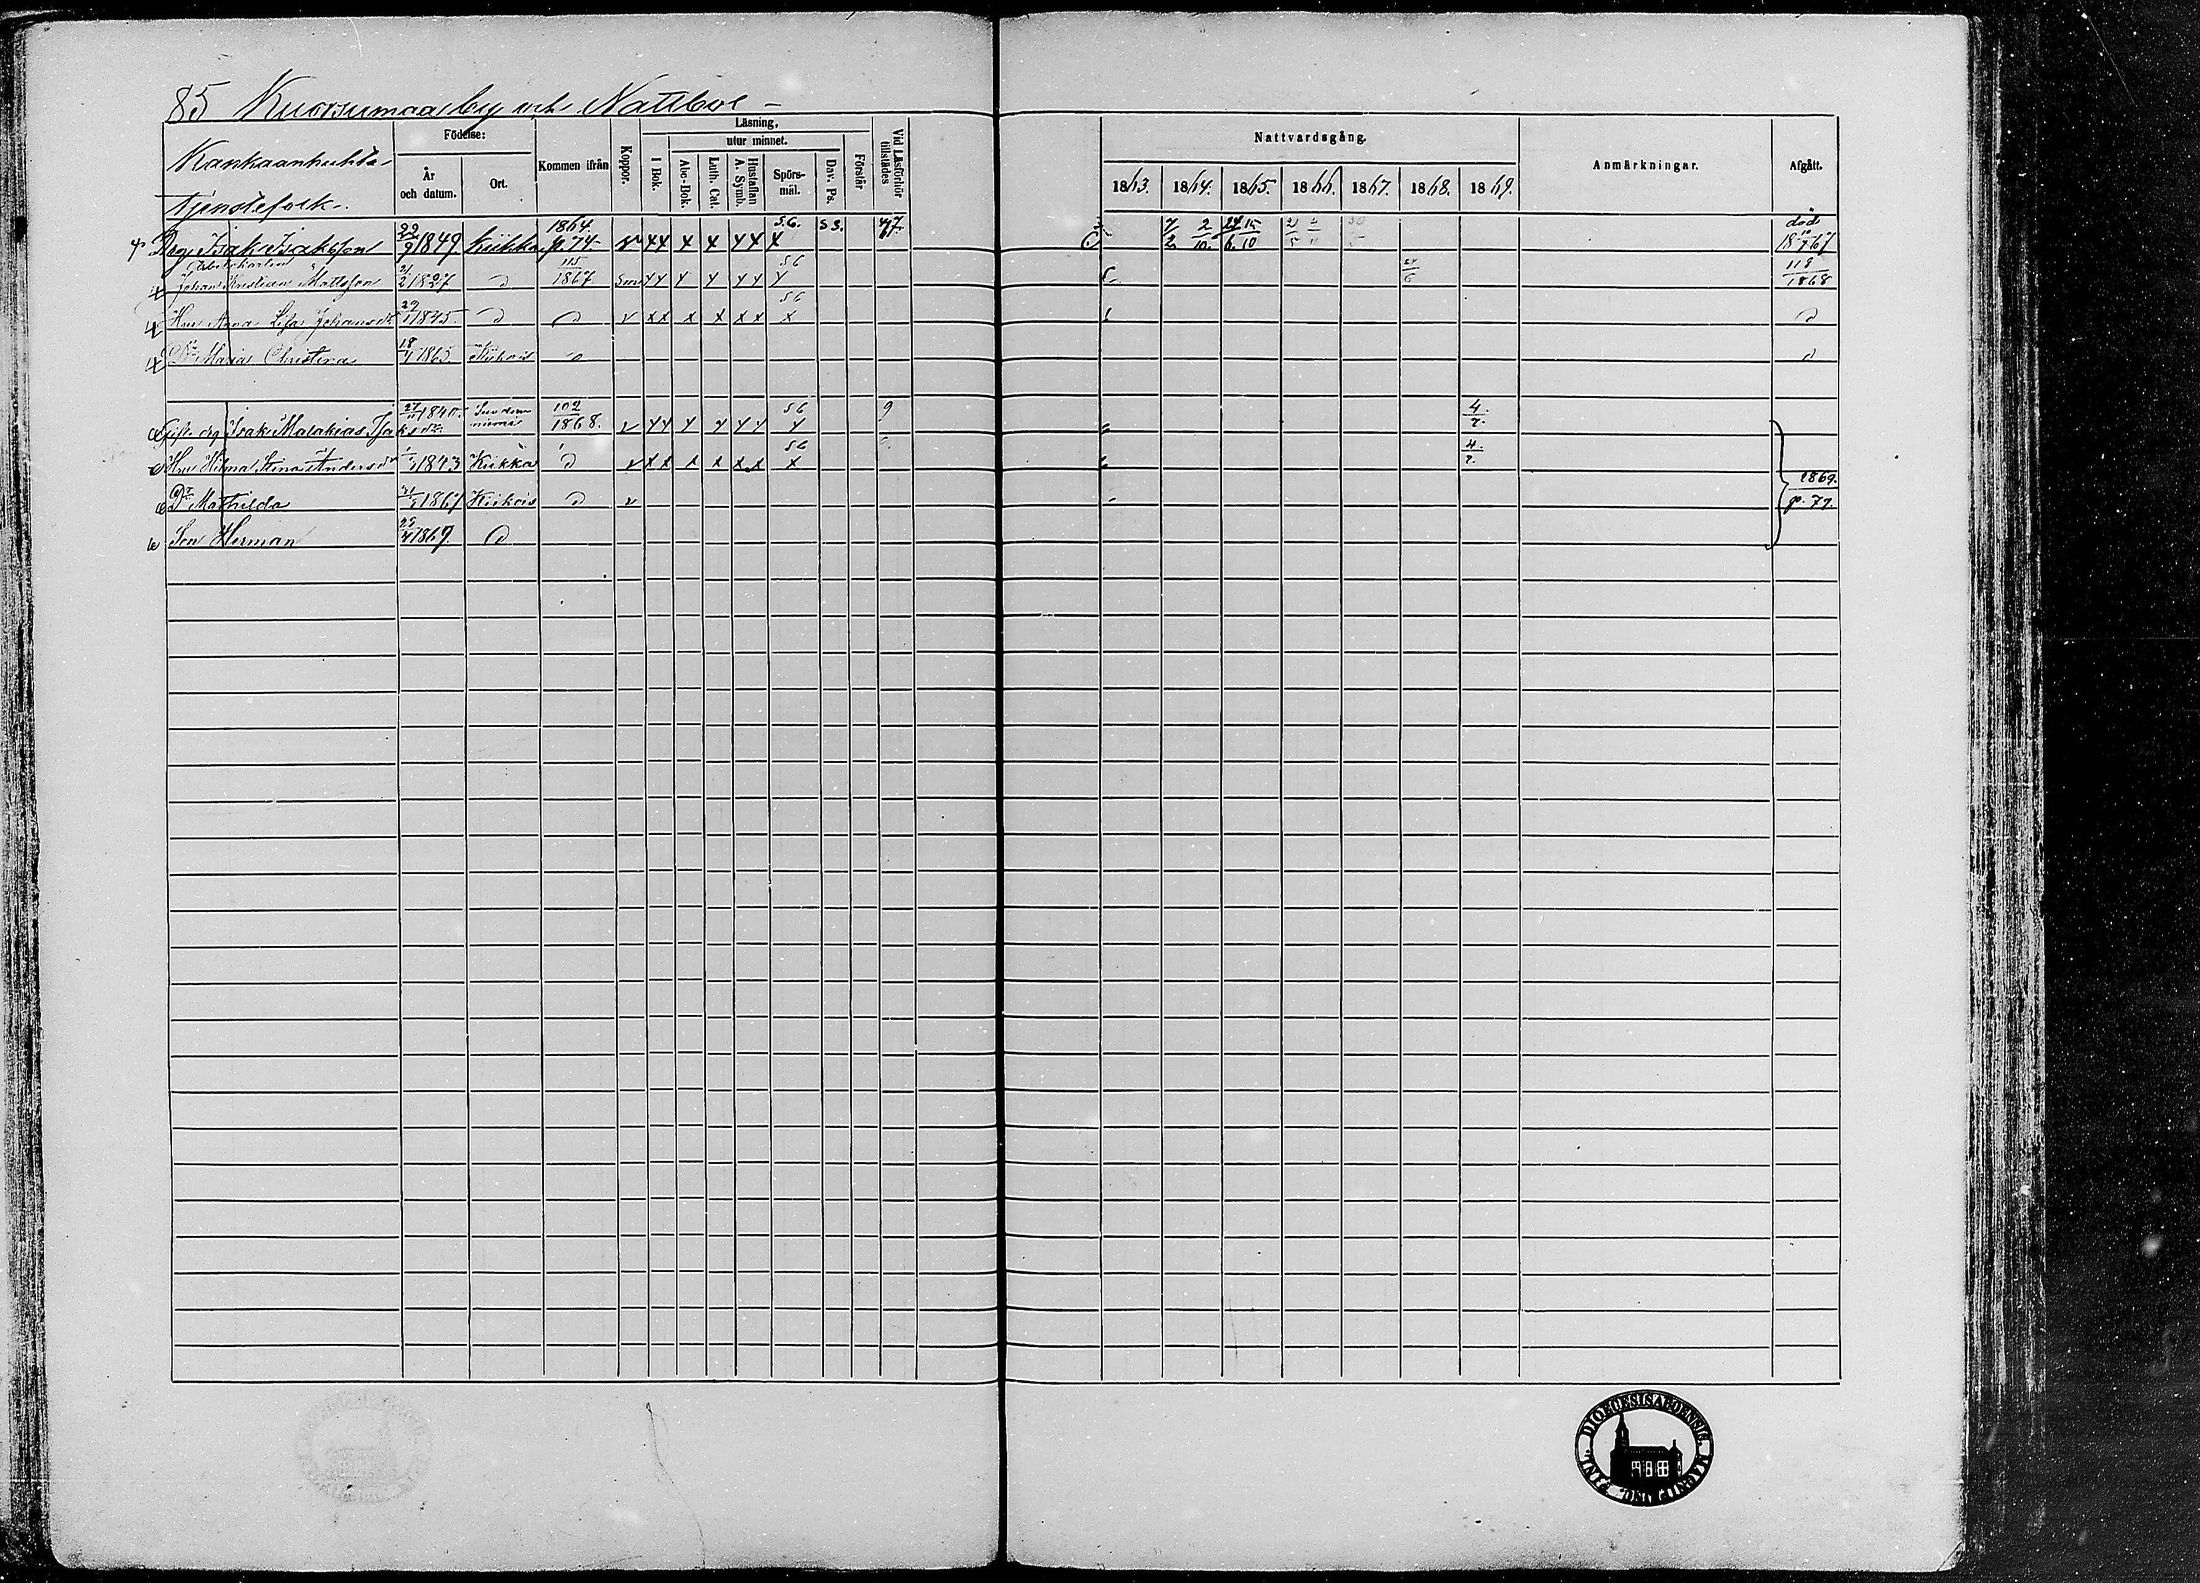 85 Kuorsumaa by och Nattbol
Kankaanhuhta
Tjenstefolk.
Födelse:
År och datum.
Ort.
Kommen ifrån
Koppor.
Läsning,
utur minnet.
I Bok.
Abc-Bok.
Luth. Cat.
Hustaflan A. Symb.
Spörs-mål.
Dav. Ps.
Förstår
Vid Läsförhör tillstädes
Nattvardsgång.
1863. 1864. 1865. 1866. 1867. 1868. 1869.
Anmärkningar.
Afgått.
Drg Isak Isaksson 22/9 1849. Kiikka 1864 p 74 v xx x x xx x s.G. s s. 67. 7/2 2/10. 24/6. 15/10 död 18 10/9 67
Johan Kristian Mattsson 2 1827 D 115/1867 sm xx x x xx x s G 24/6 118/1868
Hu Anna Lisa Johansdr 29 1845 D D v xx x x xx x s G D
Dr Maria Christina 18 1865 Kiikois D D
Gift drg Isak Malakias Isaksson 27 1840. Suodenniemi 102/1868. v xx x x xx x s G 9 4/7.
Hu Hilma Stina Andersdr 1843 Kiikka D v xx x x xx x s G 4/7.
Dr Mathilda 21 1867 Kiikois D v 1869. p. 77.
Son Herman 25/4 1869 D
FINL. DIOECESIS ABOENSIS MAGNI DUC.